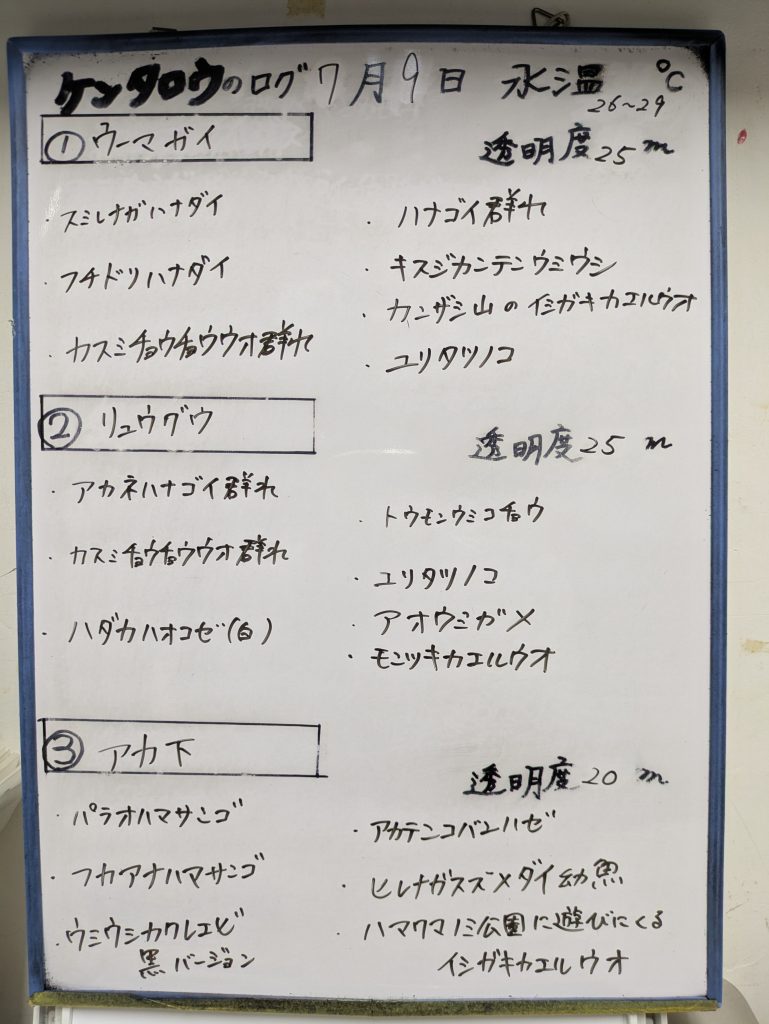 ケンタロウのログ 7月9日 水温 26~29 ℃
① ウーマガイ
透明度 25 m
・スミレナガハナダイ
・フチドリハナダイ
・カスミチョウチョウウオ群れ
・ハナゴイ群れ
・キスジカンテンウミウシ
・カンザシ山のイシガキカエルウオ
・ユリタツノコ
② リュウグウ
透明度 25 m
・アカネハナゴイ群れ
・カスミチョウチョウウオ群れ
・ハダカハオコゼ(白)
・トウモンウミコチョウ
・ユリタツノコ
・アオウミガメ
・モンツキカエルウオ
③ アカ下
透明度 20 m
・パラオハマサンゴ
・フカアナハマサンゴ
・ウミウシカクレエビ
黒バージョン
・アカテンコバンハゼ
・ヒレナガスズメダイ幼魚
・ハマワマノミ公園に遊びにくる
イシガキカエルウオ